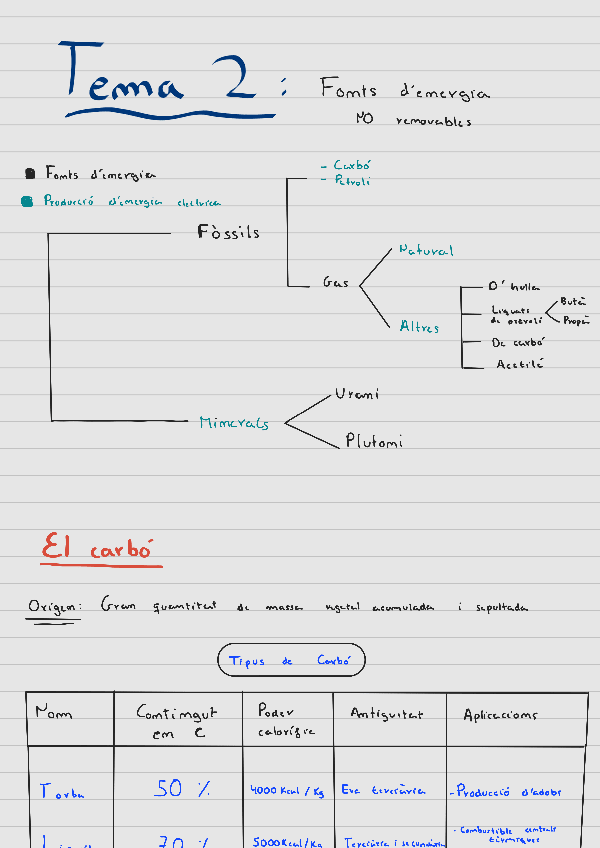 Tema 2 : Fonts d'energia
NO renovables
Fonts d'energia
Producció d'energia electrica
- Carbó
- Petroli
Fòssils
Gas
Natural
Altres
D'hulla
Liquats
de petroli
Butà
Propà
De carbó
Acetilé
Minerals
Urani
Plutoni
El carbó
Origen: Gran quantitat de massa vegetal acumulada i sepultada
Tipus de Carbó
Nom
Contingut
en C
Poder
calorífic
Antiguitat
Aplicacions
Torba
50 %
4000 Kcal / Kg
Era terciària
- Producció d'adobs
70 %
5000 Kcal / Kg
Terciària i secundària
- Combustible centrals
tèrmiques